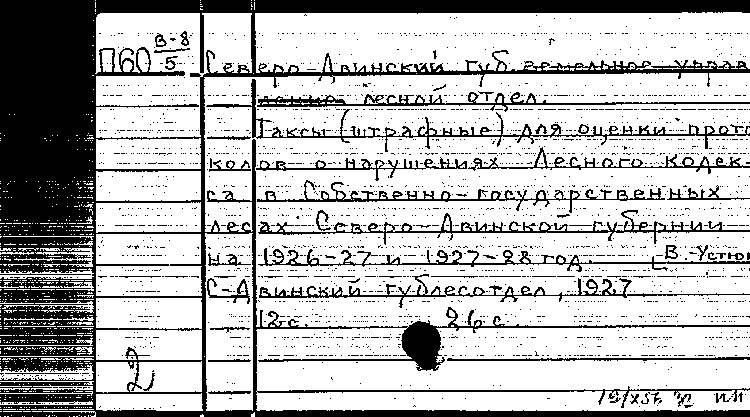 П60 В-8/5 Северо-Двинский губ. земельное управ
ление лесной отдел.
Таксы (штрафные) для оценки прото
колов о нарушениях Лесного кодек-
са в Собственно-государственных
лесах Северо-Двинской губернии
на 1926-27 и 1927-28 год. [В.-Устюг
С-Двинский гублесотдел, 1927
12с. 26 с.
2